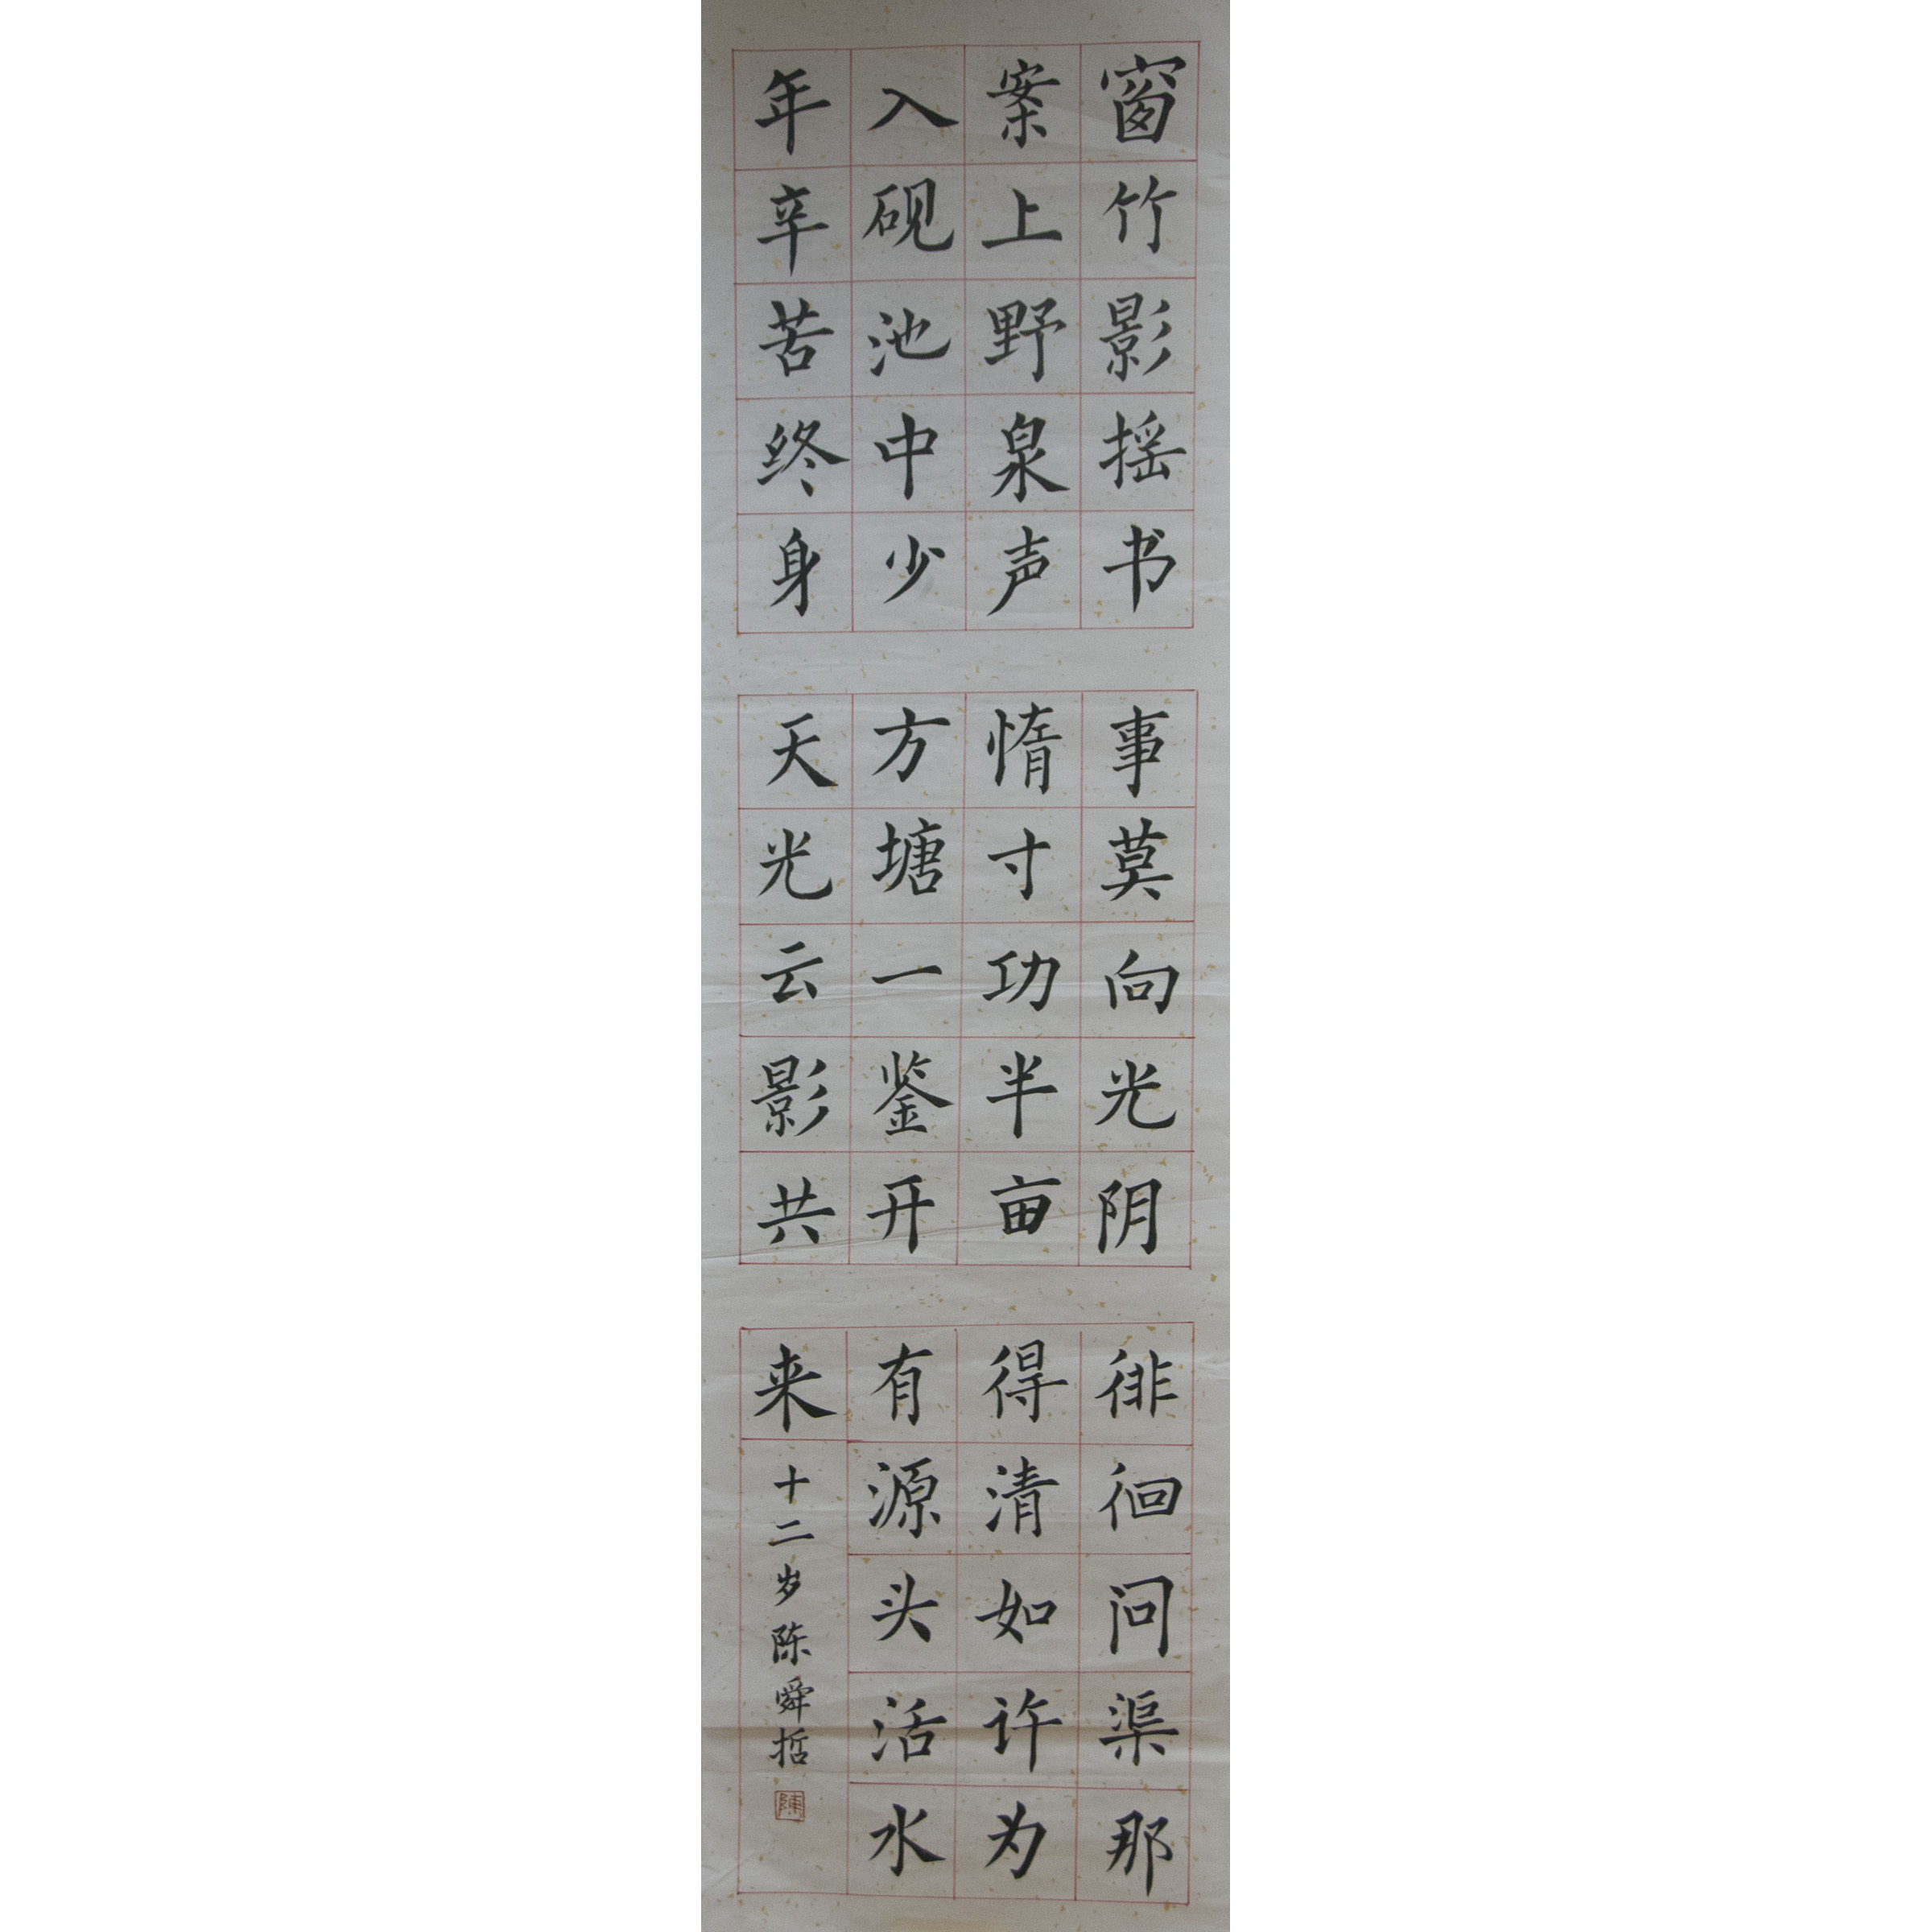 窗竹影摇书
案上野泉声
入砚池中少
年辛苦终身
事莫向光阴
惰寸功半亩
方塘一鉴开
天光云影共
徘徊问渠那
得清如许为
有源头活水
来
十二岁陈舜哲
陳